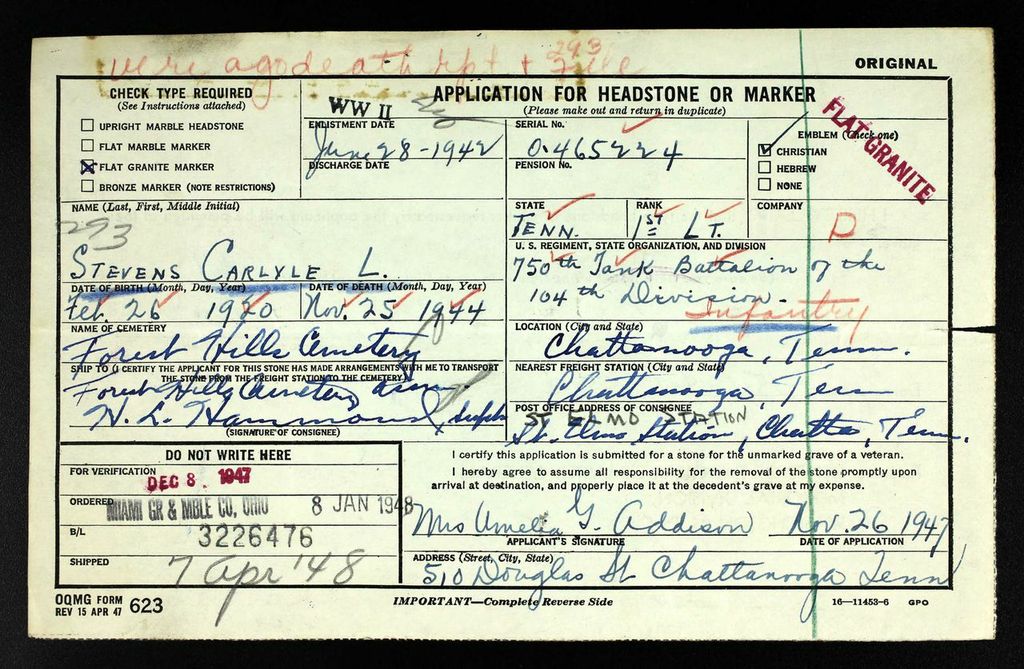 Veri ago death rpt + 293 File
ORIGINAL
CHECK TYPE REQUIRED
(See Instructions attached)
UPRIGHT MARBLE HEADSTONE
FLAT MARBLE MARKER
FLAT GRANITE MARKER
BRONZE MARKER (NOTE RESTRICTIONS)
WW II
APPLICATION FOR HEADSTONE OR MARKER
(Please make out and return in duplicate)
ENLISTMENT DATE
June 28-1942
DISCHARGE DATE
SERIAL No.
0.465224
PENSION No.
EMBLEM (Check one)
CHRISTIAN
HEBREW
NONE
FLAT GRANITE
NAME (Last, First, Middle Initial)
293
STEVENS CARLYLE L.
STATE
TENN.
RANK
1ST LT.
COMPANY
D
U. S. REGIMENT, STATE ORGANIZATION, AND DIVISION
750th Tank Battalion of the
104th Division.
Infantry
DATE OF BIRTH (Month, Day, Year)
Feb. 26 1920
DATE OF DEATH (Month, Day, Year)
Nov. 25 1944
NAME OF CEMETERY
Forest Hills Cemetery
LOCATION (City and State)
Chattanooga, Tenn.
SHIP TO (I CERTIFY THE APPLICANT FOR THIS STONE HAS MADE ARRANGEMENTS WITH ME TO TRANSPORT
THE STONE FROM THE FREIGHT STATION TO THE CEMETERY)
Forest Hills Cemetery
H. L. Hammond, Supt
(SIGNATURE OF CONSIGNEE)
NEAREST FREIGHT STATION (City and State)
Chattanooga, Tenn
POST OFFICE ADDRESS OF CONSIGNEE
ST ELMO STATION
St. Elmo Station, Chatta, Tenn.
I certify this application is submitted for a stone for the unmarked grave of a veteran.
I hereby agree to assume all responsibility for the removal of the stone promptly upon
arrival at destination, and properly place it at the decedent's grave at my expense.
DO NOT WRITE HERE
FOR VERIFICATION
DEC 8. 1947
ORDERED
MIAMI GR & MBLE CO, OHIO 8 JAN 1948
B/L
3226476
SHIPPED
7 Apr '48
Mrs Amelia G. Addison Nov. 26 1947
APPLICANT'S SIGNATURE DATE OF APPLICATION
ADDRESS (Street, City, State)
510 Douglas St Chattanooga Tenn
OQMG FORM
REV 15 APR 47 623
IMPORTANT—Complete Reverse Side
16—11453-6 GPO